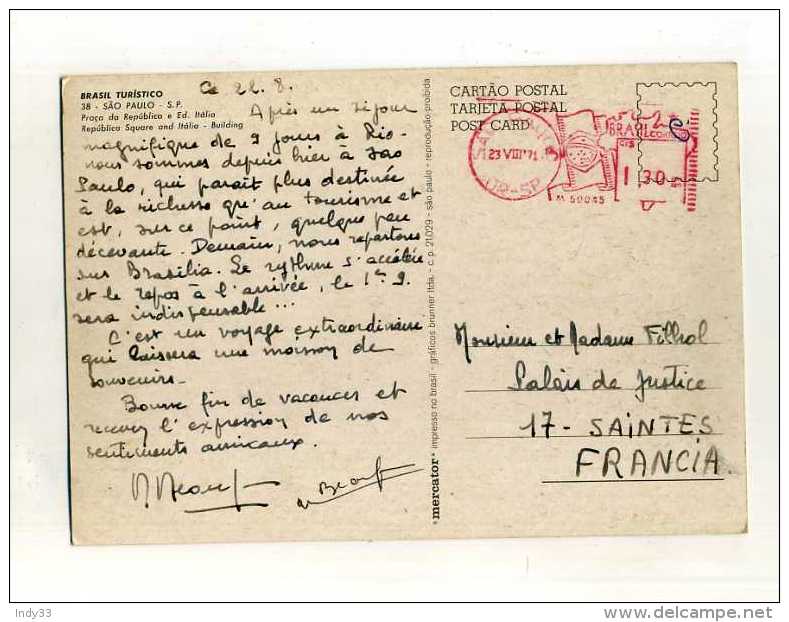 BRASIL TURÍSTICO
38 - SÃO PAULO - S.P.
Praça da República e Ed. Itália
República Square and Itália - Building
Ce 22. 8.
Après un séjour
magnifique de 9 jours à Rio-
nous sommes depuis hier à Sao
Paulo, qui paraît plus destinée
à la richesse qu'au tourisme et
est, sur ce point, quelque peu
décevante. Demain, nous repartons
sur Brasilia. Le rythme s'accélère
et le repos à l'arrivée, le 1er 9.
sera indispensable...
C'est un voyage extraordinaire
qui laissera une moisson de
souvenirs-
Bonne fin de vacances et
recevez l'expression de nos
sentiments amicaux.
mercator® impresso no brasil - gráficos brunner ltda. - c. p. 21.029 - são paulo - reprodução proibida
CARTÃO POSTAL
TARJETA POSTAL
POST CARD
23 VIII '71
SP
BRASIL CORREIO
1,30
M 50045
Monsieur et Madame Filhol
Palais de Justice
17 - SAINTES
FRANCIA
Indy33
delcampe.net